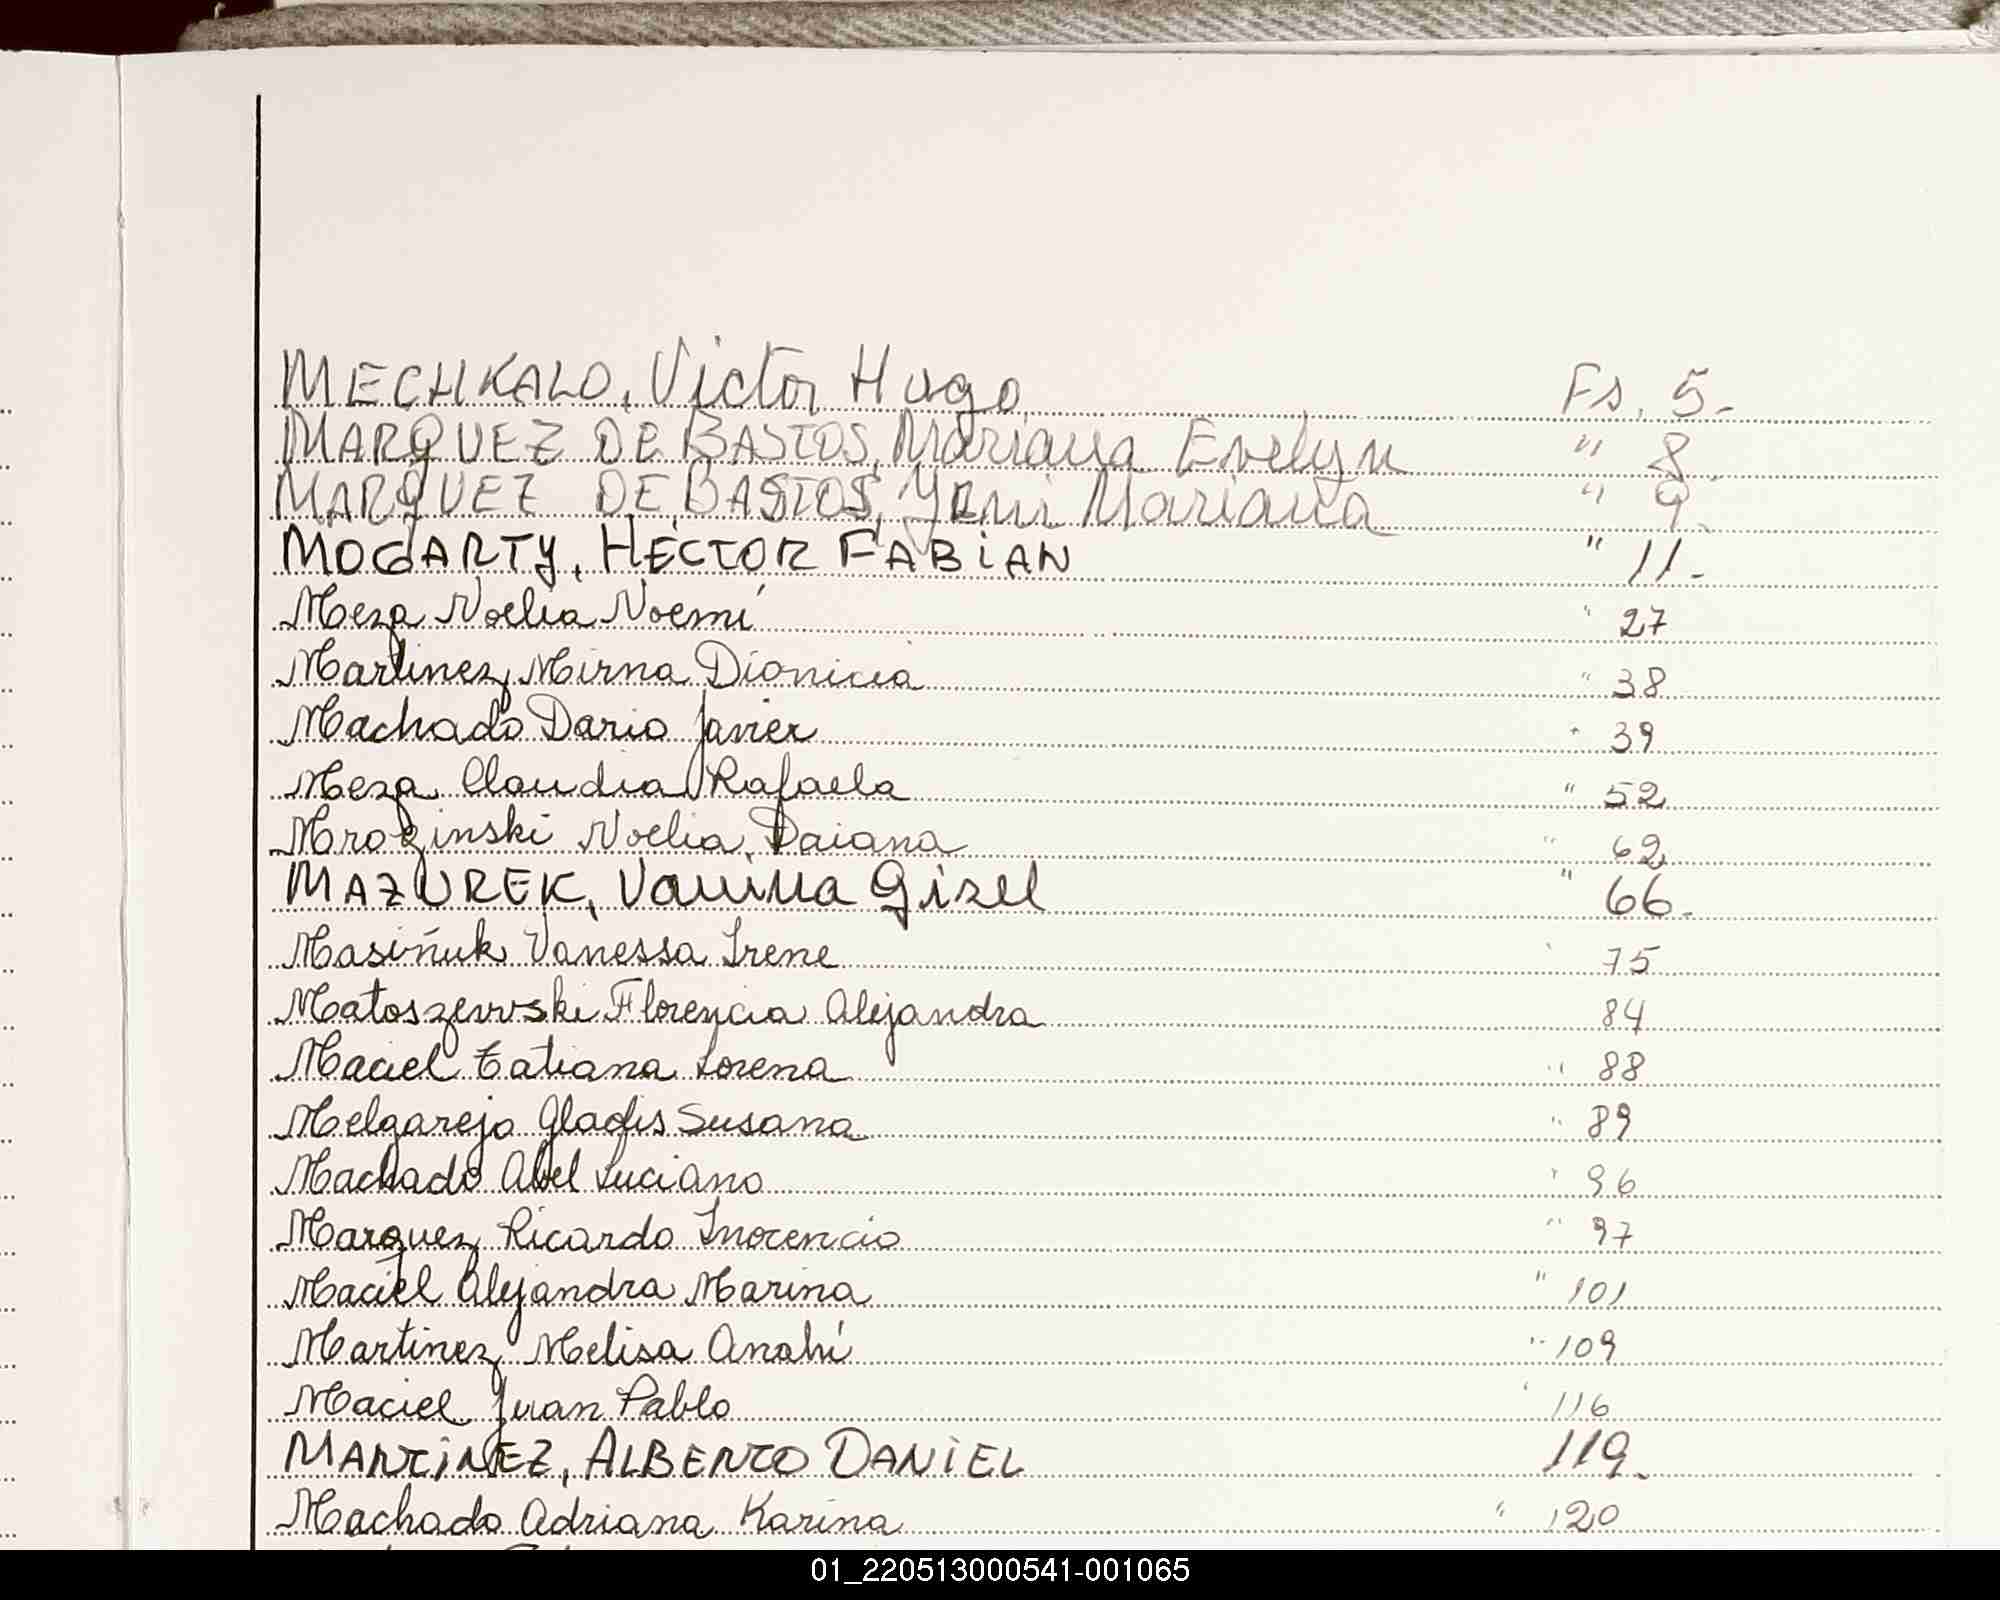 MECHKALO, Victor Hugo Fs. 5-
MARQUEZ DE BASTOS, Mariana Evelyn " 8
MARQUEZ DE BASTOS, Yeni Mariana " 9
MOGARTY, HECTOR FABIAN " 11-
Meza Noelia Noemí " 27
Martinez Mirna Dionicia " 38
Machado Dario Javier " 39
Meza Claudia Rafaela " 52
Mrozinski Noelia Daiana " 62
MAZUREK, Vanina Gisel " 66-
Masiñuk Vanessa Irene " 75
Matoszewski Florencia Alejandra 84
Maciel Tatiana Lorena " 88
Melgarejo Gladis Susana " 89
Machado Abel Luciano " 96
Marquez Ricardo Inocencio " 97
Maciel Alejandra Marina " 101
Martinez Melisa Anahí " 109
Maciel Juan Pablo " 116
MARTINEZ, ALBERTO DANIEL 119.
Machado Adriana Karina " 120
01_220513000541-001065